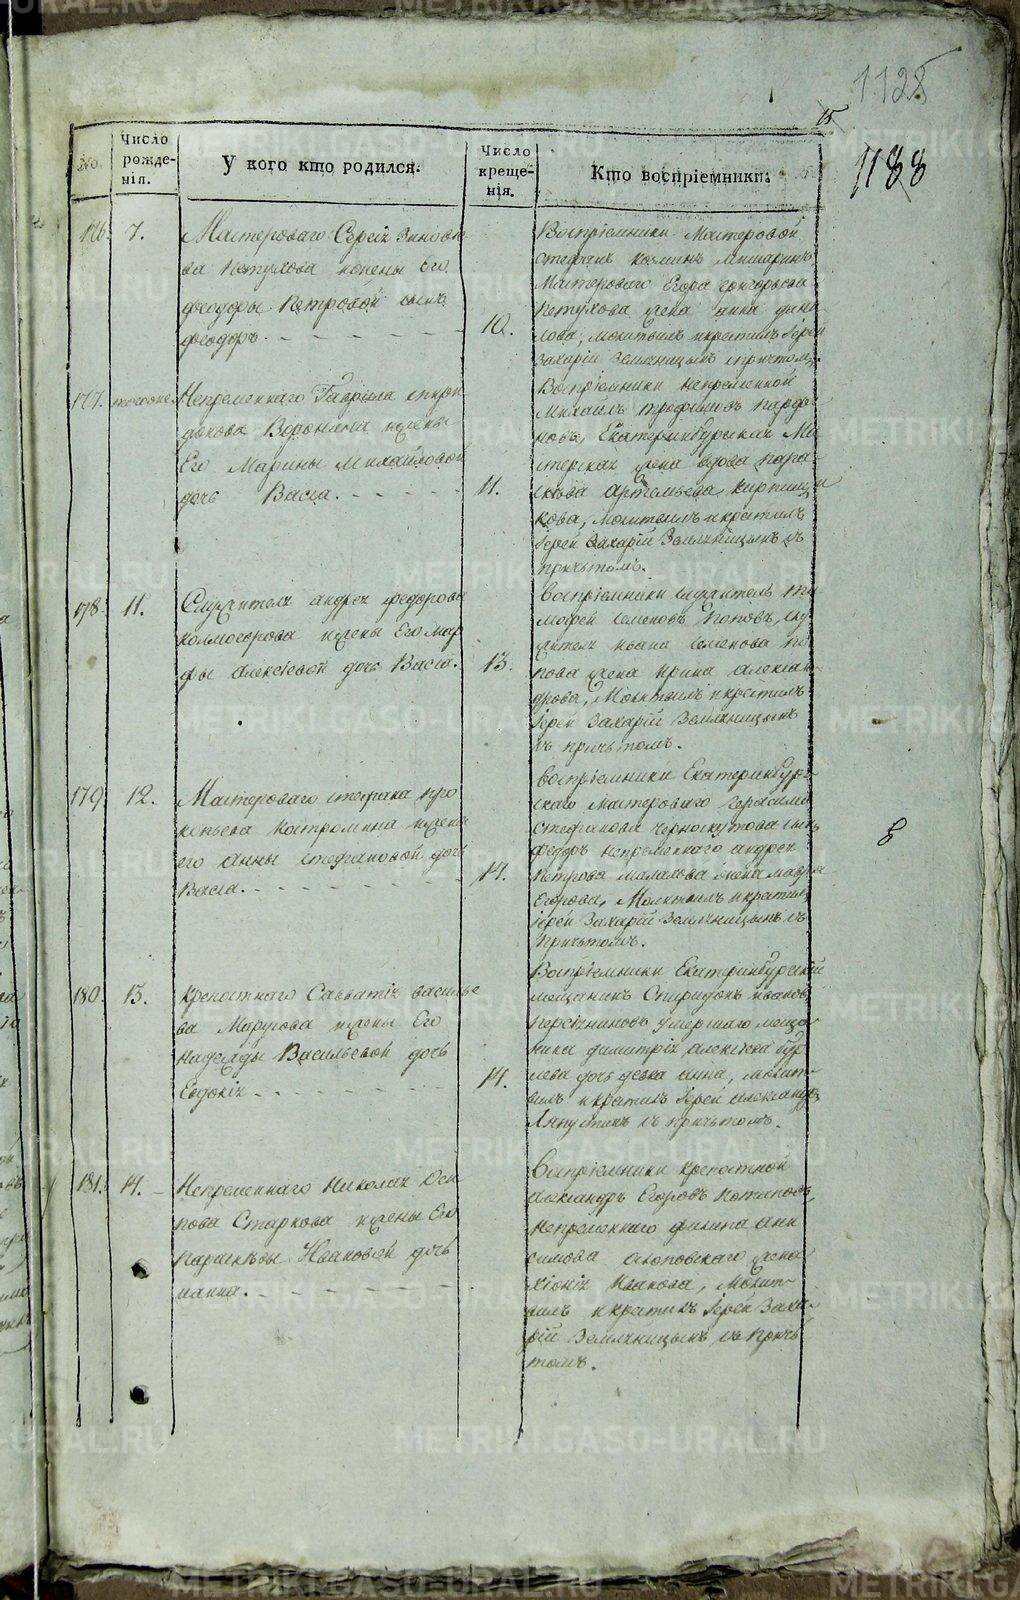 1128
15
1188
No.
Число рожде-нія.
У кого кто родился.
Число креще-нія.
Кто воспріемники.
176. 7.
Мастероваго Сергія Зиновье
ва Петухова и жены Его
Феодоры Петровой сынъ
Феодоръ.
10.
Воспріемники Мастеровой
Стефанъ Козминъ
Мастероваго Егора Григорьева
Петухова жена Анна Дани
лова, молитвилъ и крестилъ Іерей
Захарій Земляницынъ с причтомъ.
177. тогоже
Непременнаго Гавріила Спири
донова Воронина и жены
Его Марины Михайловой
дочь Васса.
11.
Воспріемники Непременной
Михаилъ Трофимовъ Парфе
новъ, Екатеринбурскаго Ма
стерскаго жена вдова Пара
скева Артемьева Кирпищи
кова, Молитвилъ и крестилъ
Іерей Захарій Земляницынъ съ
причтомъ.
178. 11.
Служителя Андрея Федорова
Колмогорова и жены Его Мар
фы Алексіевой дочь Васса.
13.
Воспріемники Служитель Ти
мофей Семеновъ Поповъ, слу
жителя Ивана Семенова По
пова жена Ирина Алексан
дрова, Молитвилъ и крестилъ
Іерей Захарій Земляницынъ
съ причтомъ.
179. 12.
Мастероваго Стефана Про
копьева Костромина и жены
его Анны Стефановой дочь
Васса.
14.
Воспріемники Екатеринбур
скаго Мастероваго Герасима
Стефанова Черноскутова сынъ
Федоръ Непременнаго Андрея
Петрова Малахова жена Мавра
Егорова, Молитвилъ и крестилъ
Іерей Захарій Земляницынъ съ
причтомъ.
8
180. 13.
Крепостнаго Савватія Василье
ва Маругова и жены Его
Надежды Васильевой дочь
Евдокія
14.
Воспріемники Екатеринбургскій
мещанинъ Спиридонъ Ивановъ
умершаго меща
нина Димитрія Алексіева Бур
лева дочь девка Анна, молит
вилъ и крестилъ Іерей Александръ
съ причтомъ.
181. 14.
Непременнаго Николая Оси
пова Старкова и жены Его
Парасковы Ивановой дочь
Іанна.
Воспріемники крепостной
Александръ Егоровъ Потаповъ,
Непременнаго Филипа Ани
симова жена
Хіонія Иванова, Молит
вилъ и крестилъ Іерей Заха
рій Земляницынъ, съ Причь
томъ.
METRIKI.GASO-URAL.RU